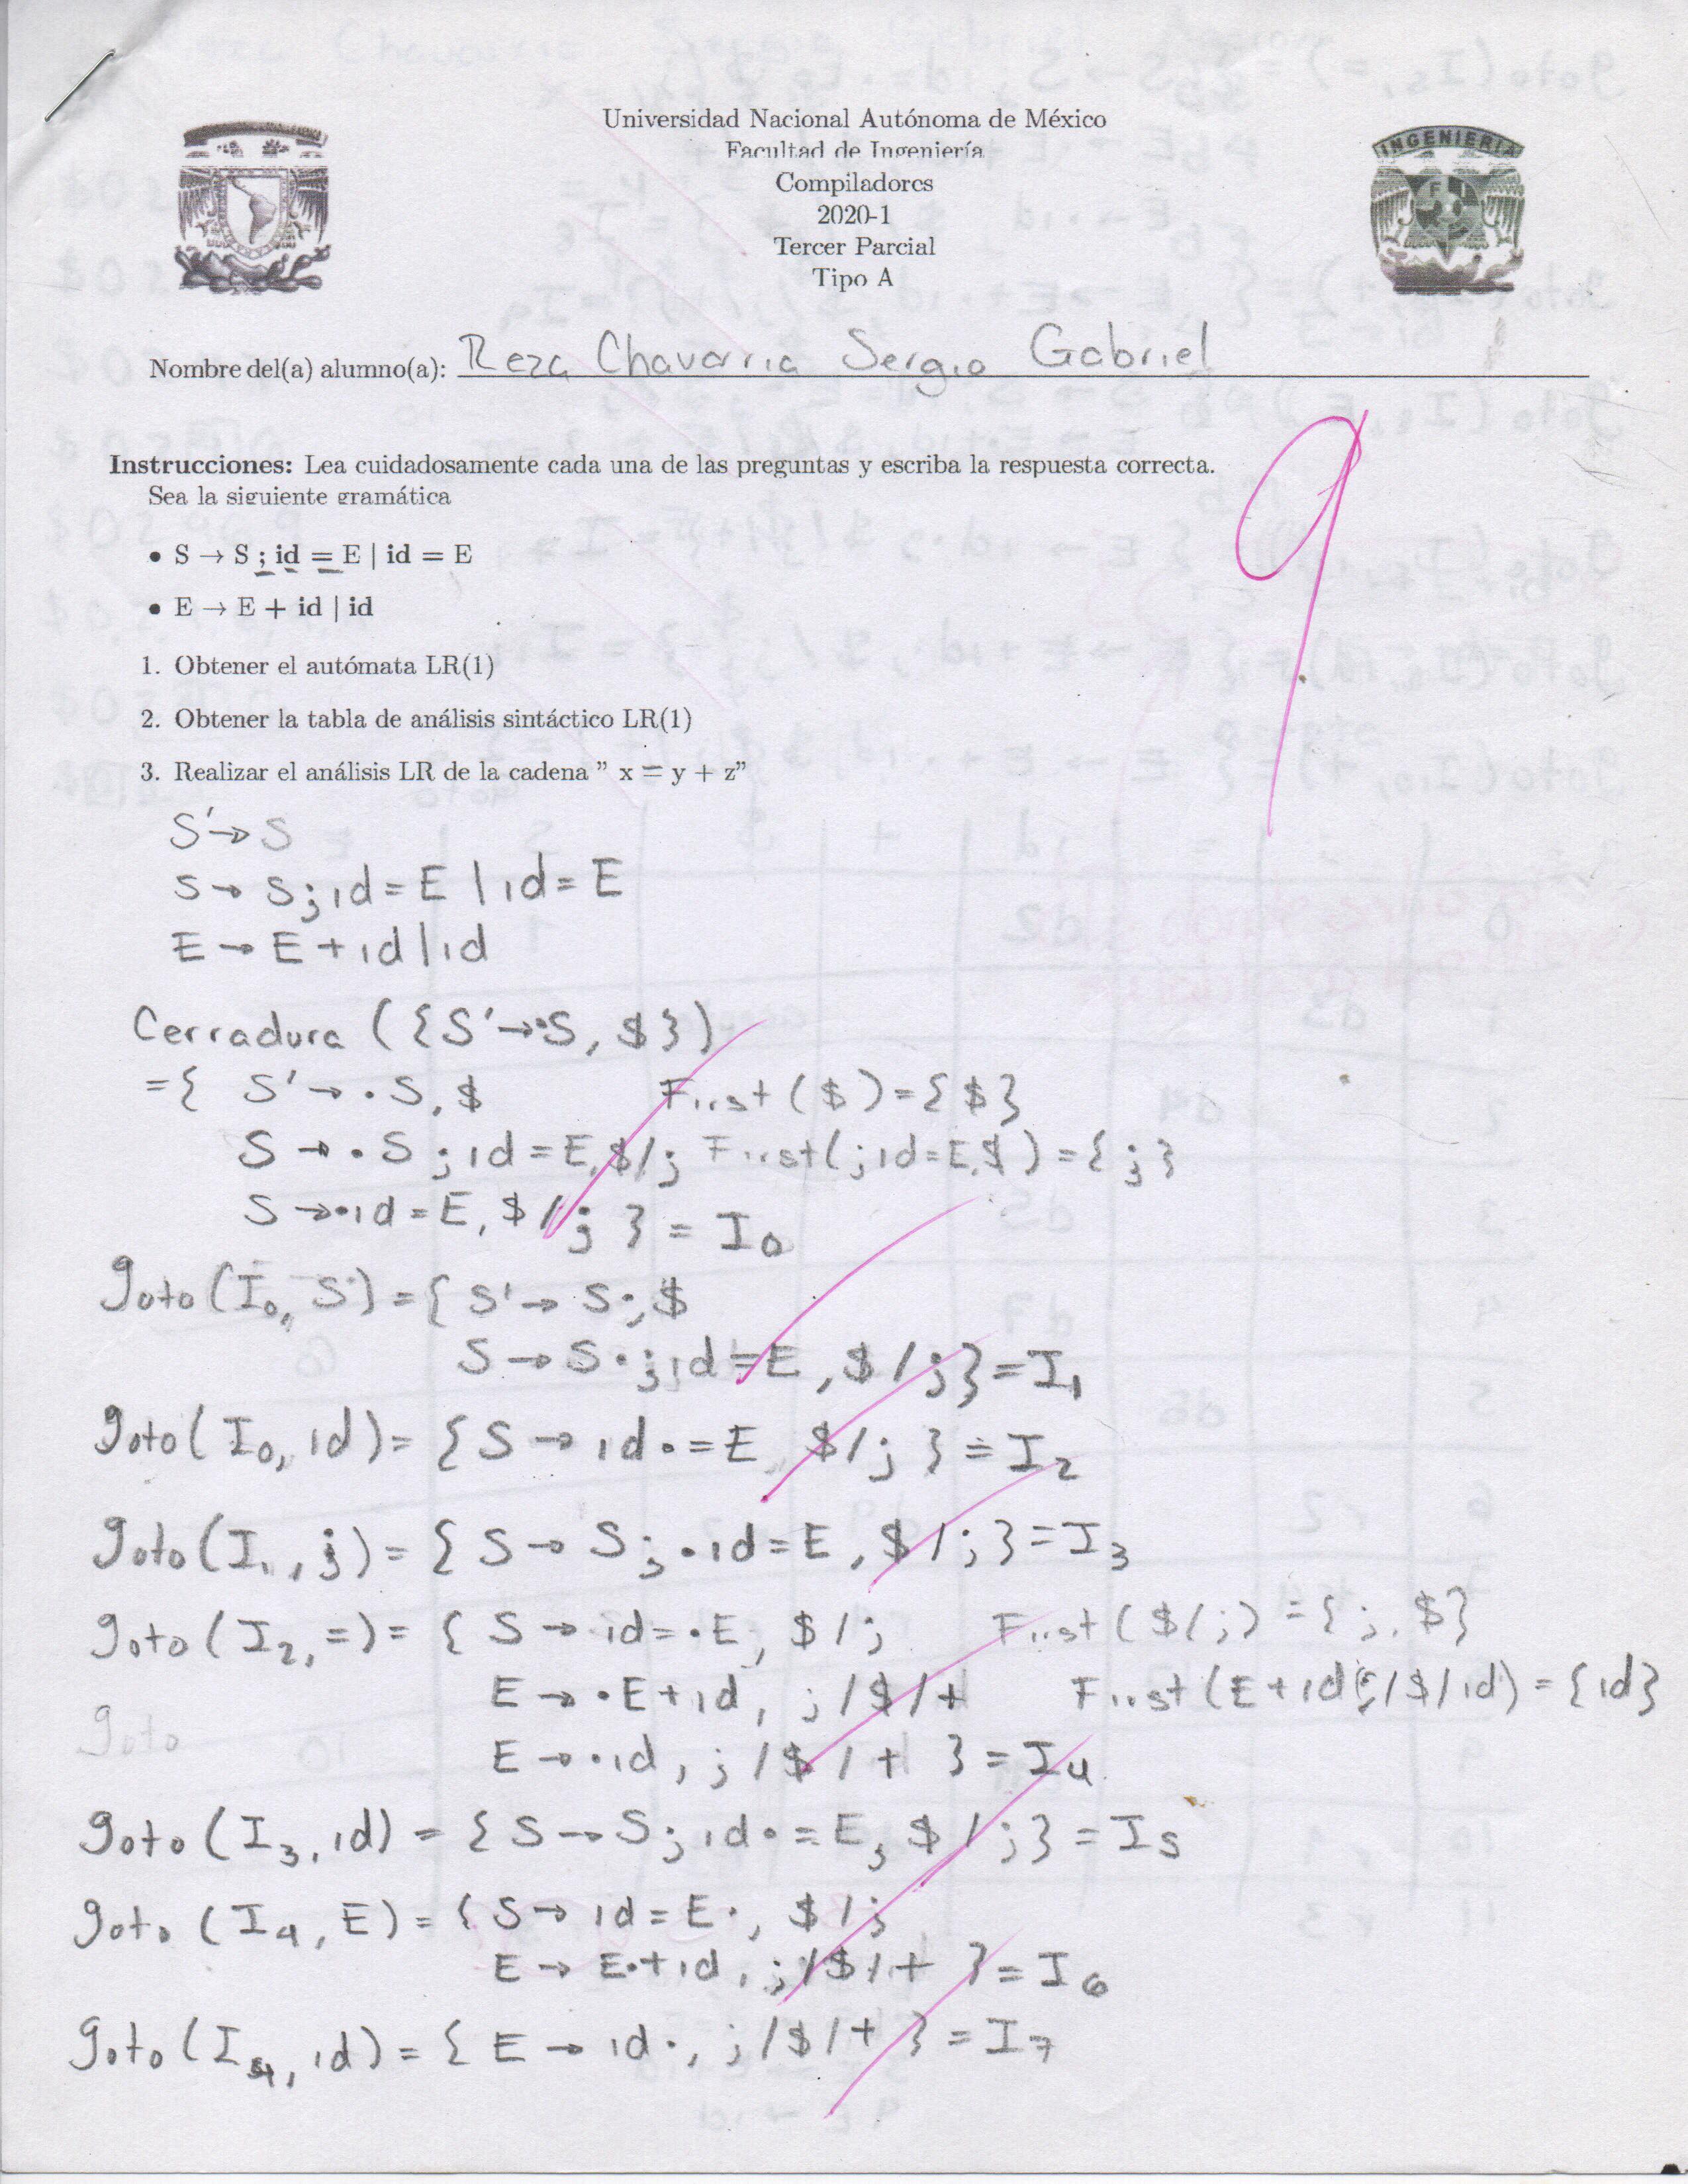 Universidad Nacional Autónoma de México
Facultad de Ingeniería
Compiladores
2020-1
Tercer Parcial
Tipo A
INGENIERIA
Nombre del(a) alumno(a): Reza Chavarria Sergio Gabriel
9
Instrucciones: Lea cuidadosamente cada una de las preguntas y escriba la respuesta correcta.
Sea la siguiente gramática
• S → S ; id = E | id = E
• E → E + id | id
1. Obtener el autómata LR(1)
2. Obtener la tabla de análisis sintáctico LR(1)
3. Realizar el análisis LR de la cadena ” x = y + z”
S' → S
S → S; id = E | id = E
E → E + id | id
Cerradura ({S' → •S, $})
={ S' → •S, $ First($)={$}
S → •S ; id = E, $/; First(;id=E,$)={;}
S → •id = E, $/; } = I0
goto(I0, S) = { S' → S•, $
S → S•; id = E, $/;} = I1
goto(I0, id) = { S → id• = E, $/; } = I2
goto(I1, ;) = { S → S; •id = E, $/;} = I3
goto(I2, =) = { S → id = •E, $/; First($/;) = {;, $}
E → •E + id, ;/$/+ First(E+id;/$/id) = {id}
goto
E → •id, ;/$/+ } = I4
goto(I3, id) = { S → S; id• = E, $/;} = I5
goto(I4, E) = { S → id = E•, $/;
E → E•+id, ;/$/+ } = I6
goto(I4, id) = { E → id•, ;/$/+ } = I7